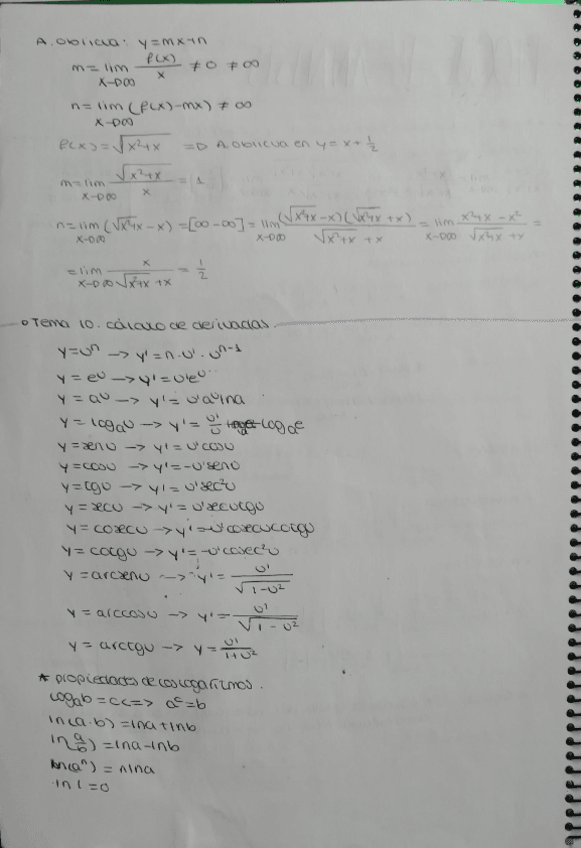 A. Oblicua: y=mx+n
m = lim x→∞ f(x)/x ≠ 0 ≠ ∞
n = lim x→∞ (f(x)-mx) ≠ ∞
f(x) = √(x²+x) => A. Oblicua en y = x + 1/2
m = lim x→∞ √(x²+x)/x = 1
n = lim x→∞ (√(x²+x) - x) = [∞ - ∞] = lim x→∞ (√(x²+x) - x)(√(x²+x) + x)/(√(x²+x) + x) = lim x→∞ (x²+x - x²)/(√(x²+x) + x) =
= lim x→∞ x/(√(x²+x) + x) = 1/2
Tema 10. cálculo de derivadas
y = uⁿ -> y' = n · u' · uⁿ⁻¹
y = eᵘ -> y' = u'eᵘ
y = aᵘ -> y' = u'aᵘ lna
y = logₐu -> y' = u'/u logₐe
y = senu -> y' = u'cosu
y = cosu -> y' = -u'senu
y = tgu -> y' = u'sec²u
y = secu -> y' = u'secutgu
y = cosecu -> y' = -u'cosecucotgu
y = cotgu -> y' = -u'cosec²u
y = arcsenu -> y' = u'/√(1-u²)
y = arccosu -> y' = u'/√(1-u²)
y = arctgu -> y = u'/(1+u²)
* propiedades de los logaritmos.
logₐb = c <=> aᶜ = b
ln(a·b) = lna + lnb
ln(a/b) = lna - lnb
ln(aⁿ) = nlna
ln1 = 0